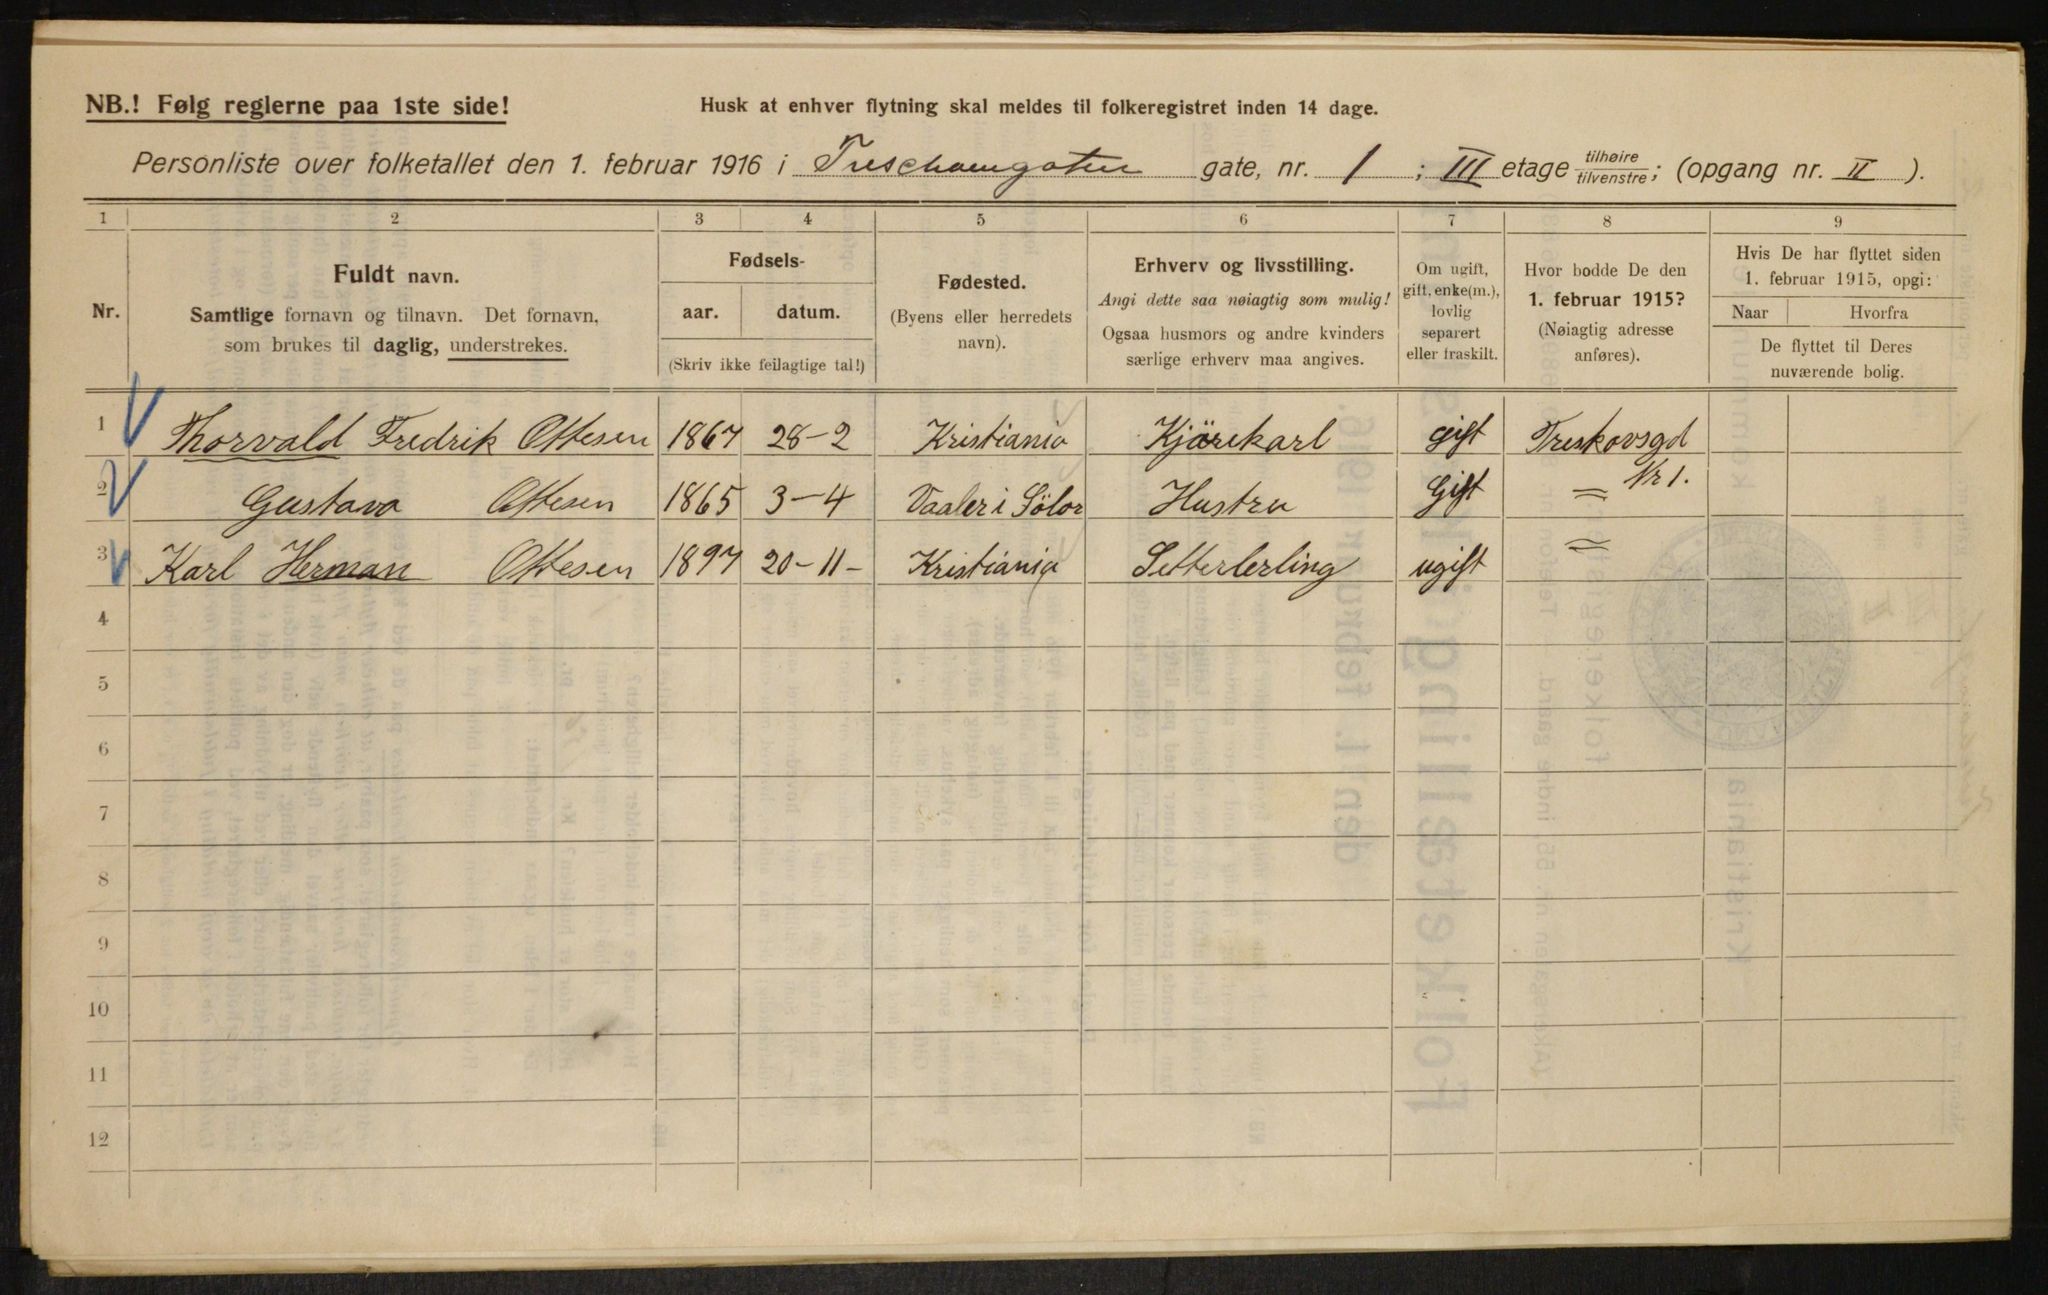 NB.! Følg reglerne paa 1ste side!
Husk at enhver flytning skal meldes til folkeregistret inden 14 dage.
Personliste over folketallet den 1. februar 1916 i Treschowsgaten gate, nr. 1 ; III etage tilhøire tilvenstre ; (opgang nr. II ).
1 2 3 4 5 6 7 8 9
Nr.
Fuldt navn.
Samtlige fornavn og tilnavn. Det fornavn,
som brukes til daglig, understrekes.
Fødsels-
aar. datum.
(Skriv ikke feilagtige tal!)
Fødested.
(Byens eller herredets
navn).
Erhverv og livsstilling.
Angi dette saa nøiagtig som mulig!
Ogsaa husmors og andre kvinders
særlige erhverv maa angives.
Om ugift,
gift, enke(m.),
lovlig
separert
eller fraskilt.
Hvor bodde De den
1. februar 1915?
(Nøiagtig adresse
anføres).
Hvis De har flyttet siden
1. februar 1915, opgi:
Naar Hvorfra
De flyttet til Deres
nuværende bolig.
1 Thorvald Fredrik Ottesen 1867 28-2 Kristiania Kjörekarl Gift Treskovsgd
Nr 1.
2 Gustava Ottesen 1865 3-4 Vaaler i Sölor Hustru Gift =
3 Karl Herman Ottesen 1897 20-11- Kristiania Setterlerling ugift =
4
5
6
7
8
9
10
11
12